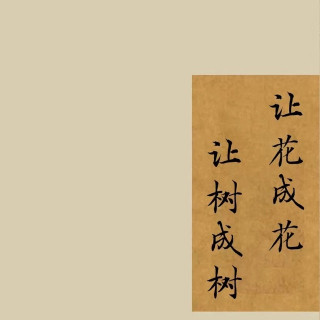 让花成花
让树成树